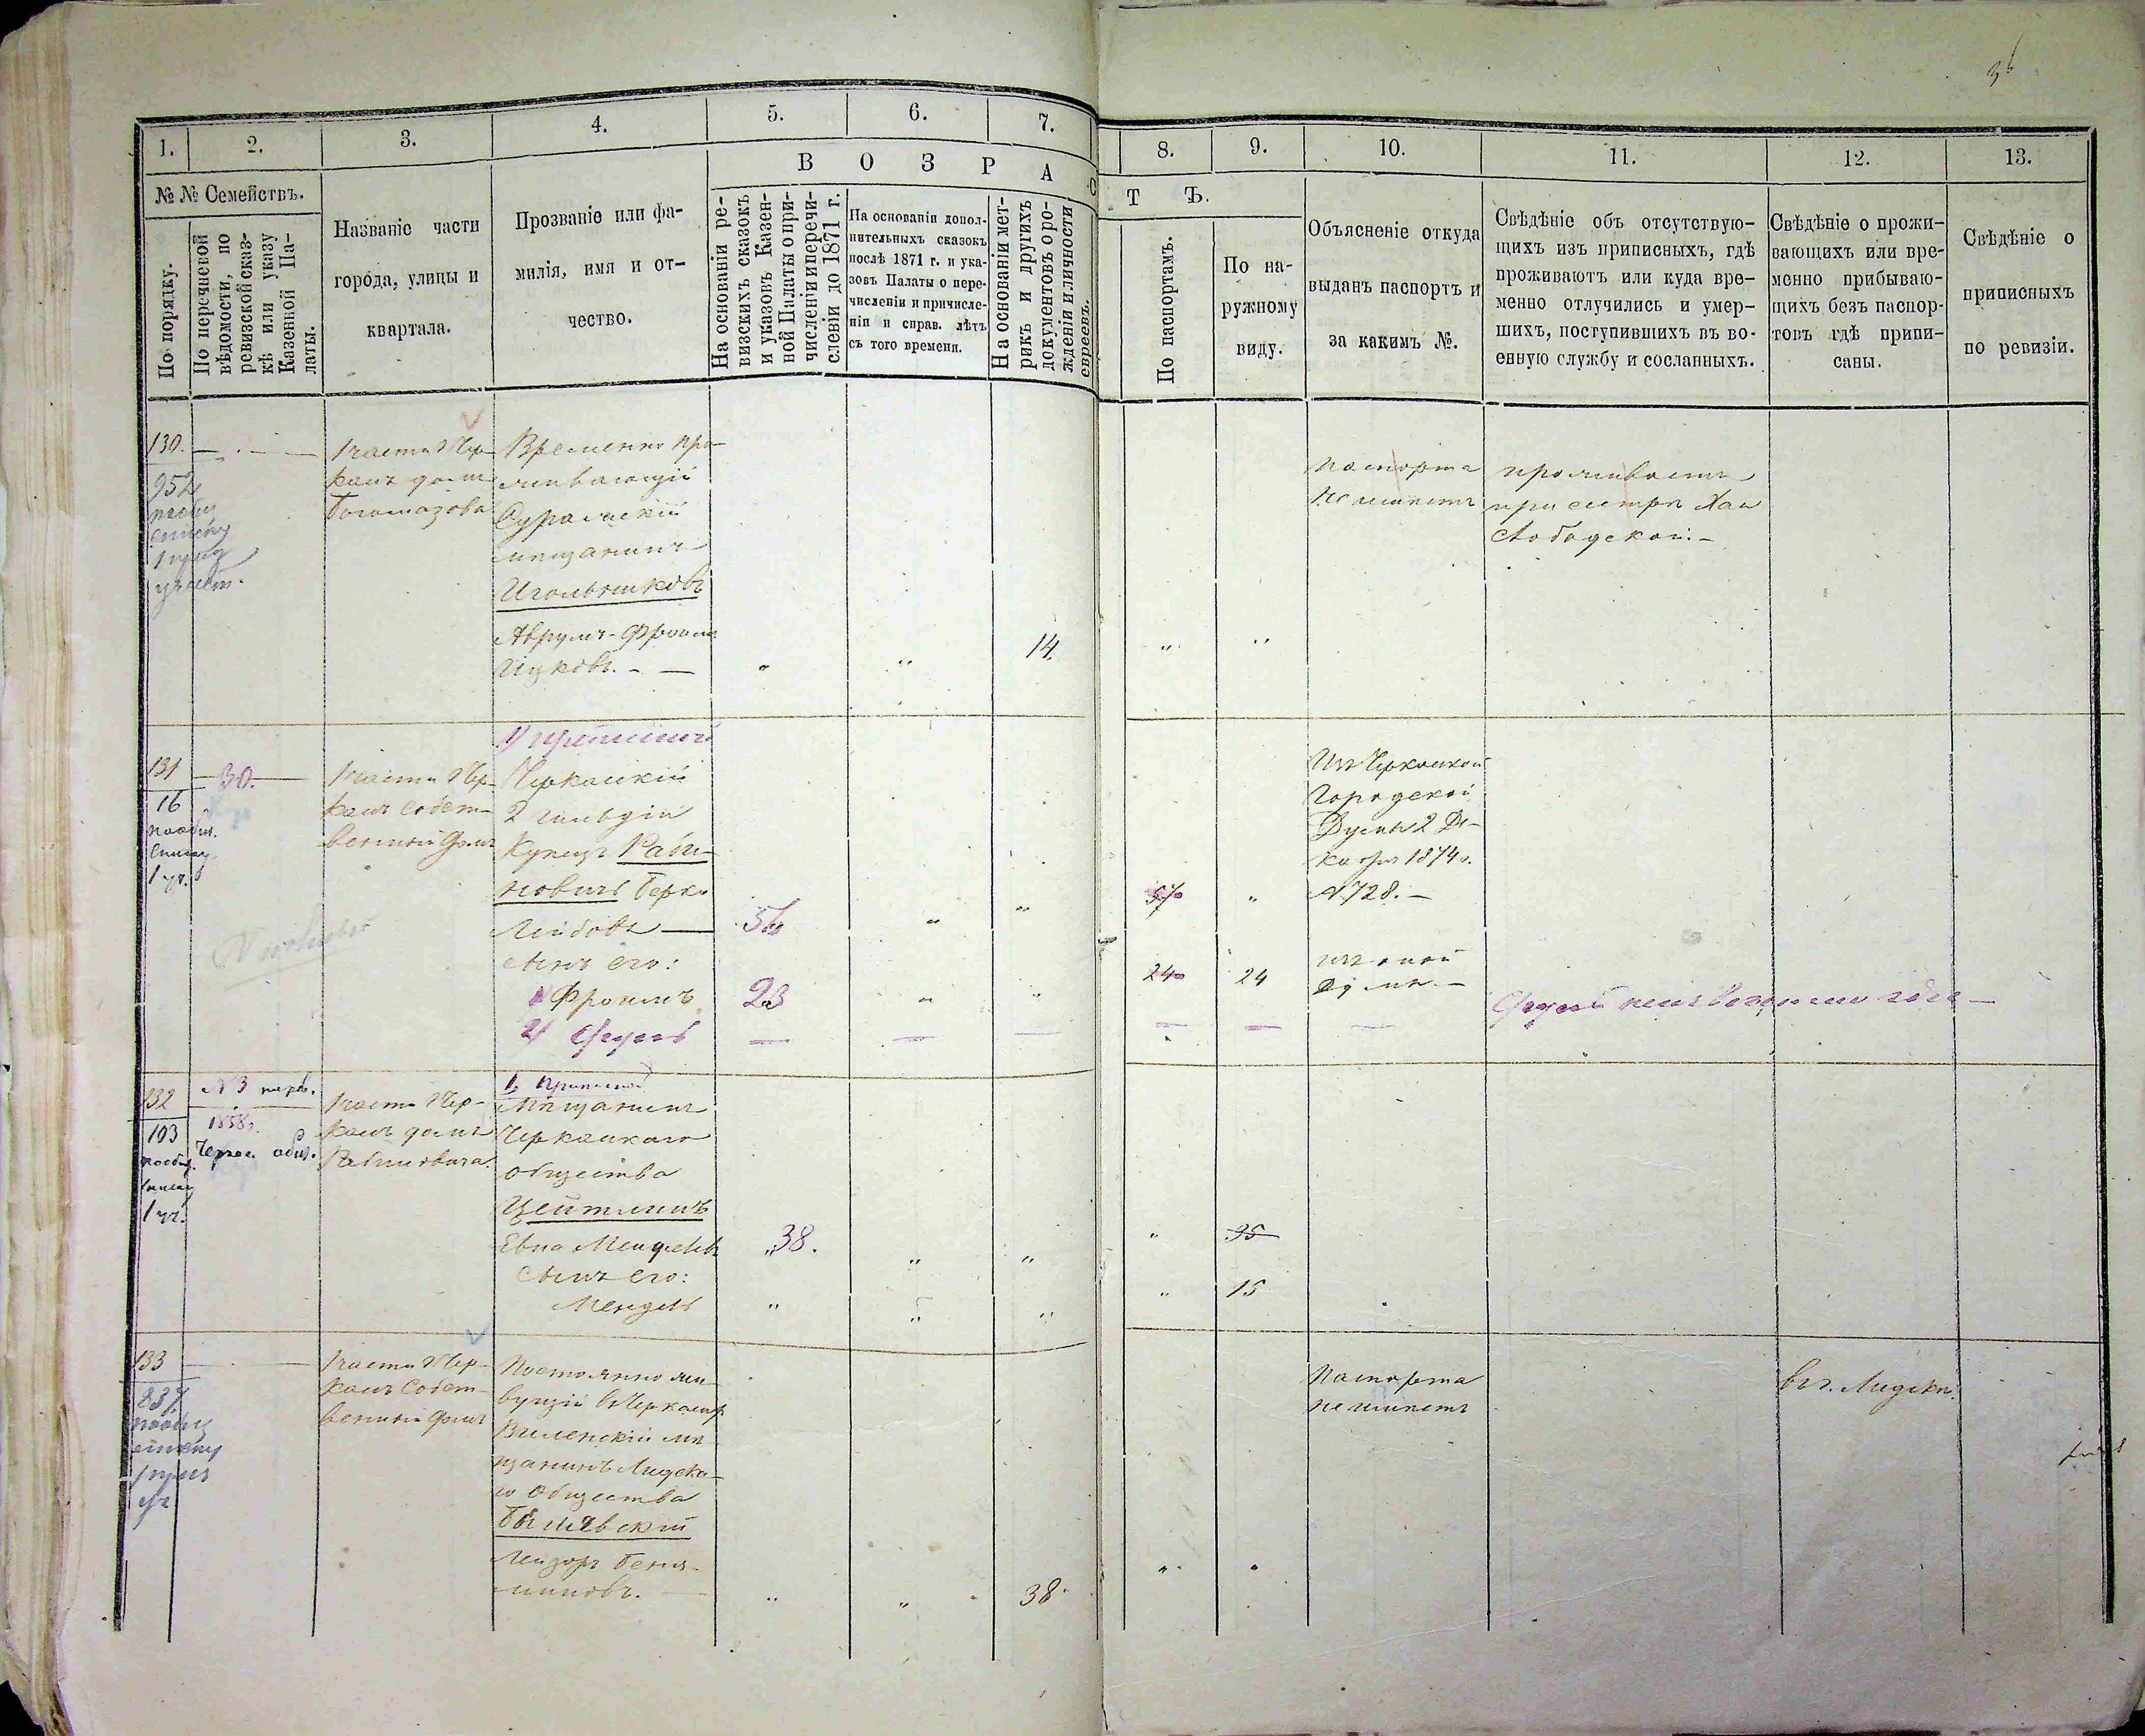 36
1.
2.
3.
4.
5.
6.
7.
8.
9.
10.
11.
12.
13.
№ № Семействъ.
В О З Р А С Т Ъ.
По порядку.
По перечневой
вѣдомости, по
ревизской сказ-
кѣ или указу
Казенной Па-
латы.
Названіе части
города, улицы и
квартала.
Прозваніе или фа-
милія, имя и от-
чество.
На основаніи ре-
визскихъ сказокъ
и указовъ Казен-
ной Палаты о при-
численіи и перечи-
сленіи до 1871 г.
На основаніи допол-
нительныхъ сказокъ
послѣ 1871 г. и ука-
зовъ Палаты о пере-
численіи и причисле-
ніи и справ. лѣтъ
съ того времени.
На основаніи мет-
рикъ и другихъ
документовъ о ро-
жденіи и личности
евреевъ.
По паспортамъ.
По на-
ружному
виду.
Объясненіе откуда
выданъ паспортъ и
за какимъ №.
Свѣдѣніе объ отсутствую-
щихъ изъ приписныхъ, гдѣ
проживаютъ или куда вре-
менно отлучились и умер-
шихъ, поступившихъ въ во-
енную службу и сосланныхъ.
Свѣдѣніе о прожи-
вающихъ или вре-
менно прибываю-
щихъ безъ паспор-
товъ гдѣ припи-
саны.
Свѣдѣніе о
приписныхъ
по ревизіи.
130.
952
списку
1 части Чер-
касъ домъ
Богомазова
Временно про-
живающій
Суражскій
мѣщанинъ
Игольниковъ
Аврумъ-Фроимъ
Ицковъ.
14.
Паспорта
не имѣетъ
проживаетъ
при сестрѣ Хаи
Слободской.
131
16
1 уч.
30.
1 части Чер-
касъ собст-
венный домъ
1) приписной
Черкаскій
2 гильдіи
Купецъ Раби-
новичъ Берко
Лейбовъ
56
57
Изъ Черкаской
Городской
Думы 2 Де-
кабря 1874 г.
№ 728.
сынъ его:
Фроимъ
23
24
24
изъ оной
Думы
2)
132
103
1 уч.
№ 3
1858 г.
1 части Чер-
касъ домъ
Рабиновича.
1. приписной
Мѣщанинъ
Черкаскаго
общества
Цейтлинъ
Евна Менделевъ
38.
35
сынъ его:
Мендель
15
133
837
1 части Чер-
касъ собст-
венный домъ
Постоянно жи-
вущій въ Черкасахъ
Виленскій мѣ-
щанинъ Лидска-
го Общества
Лейзоръ Беня-
миновъ.
38.
Паспорта
не имѣетъ
въ г. Лидскѣ.